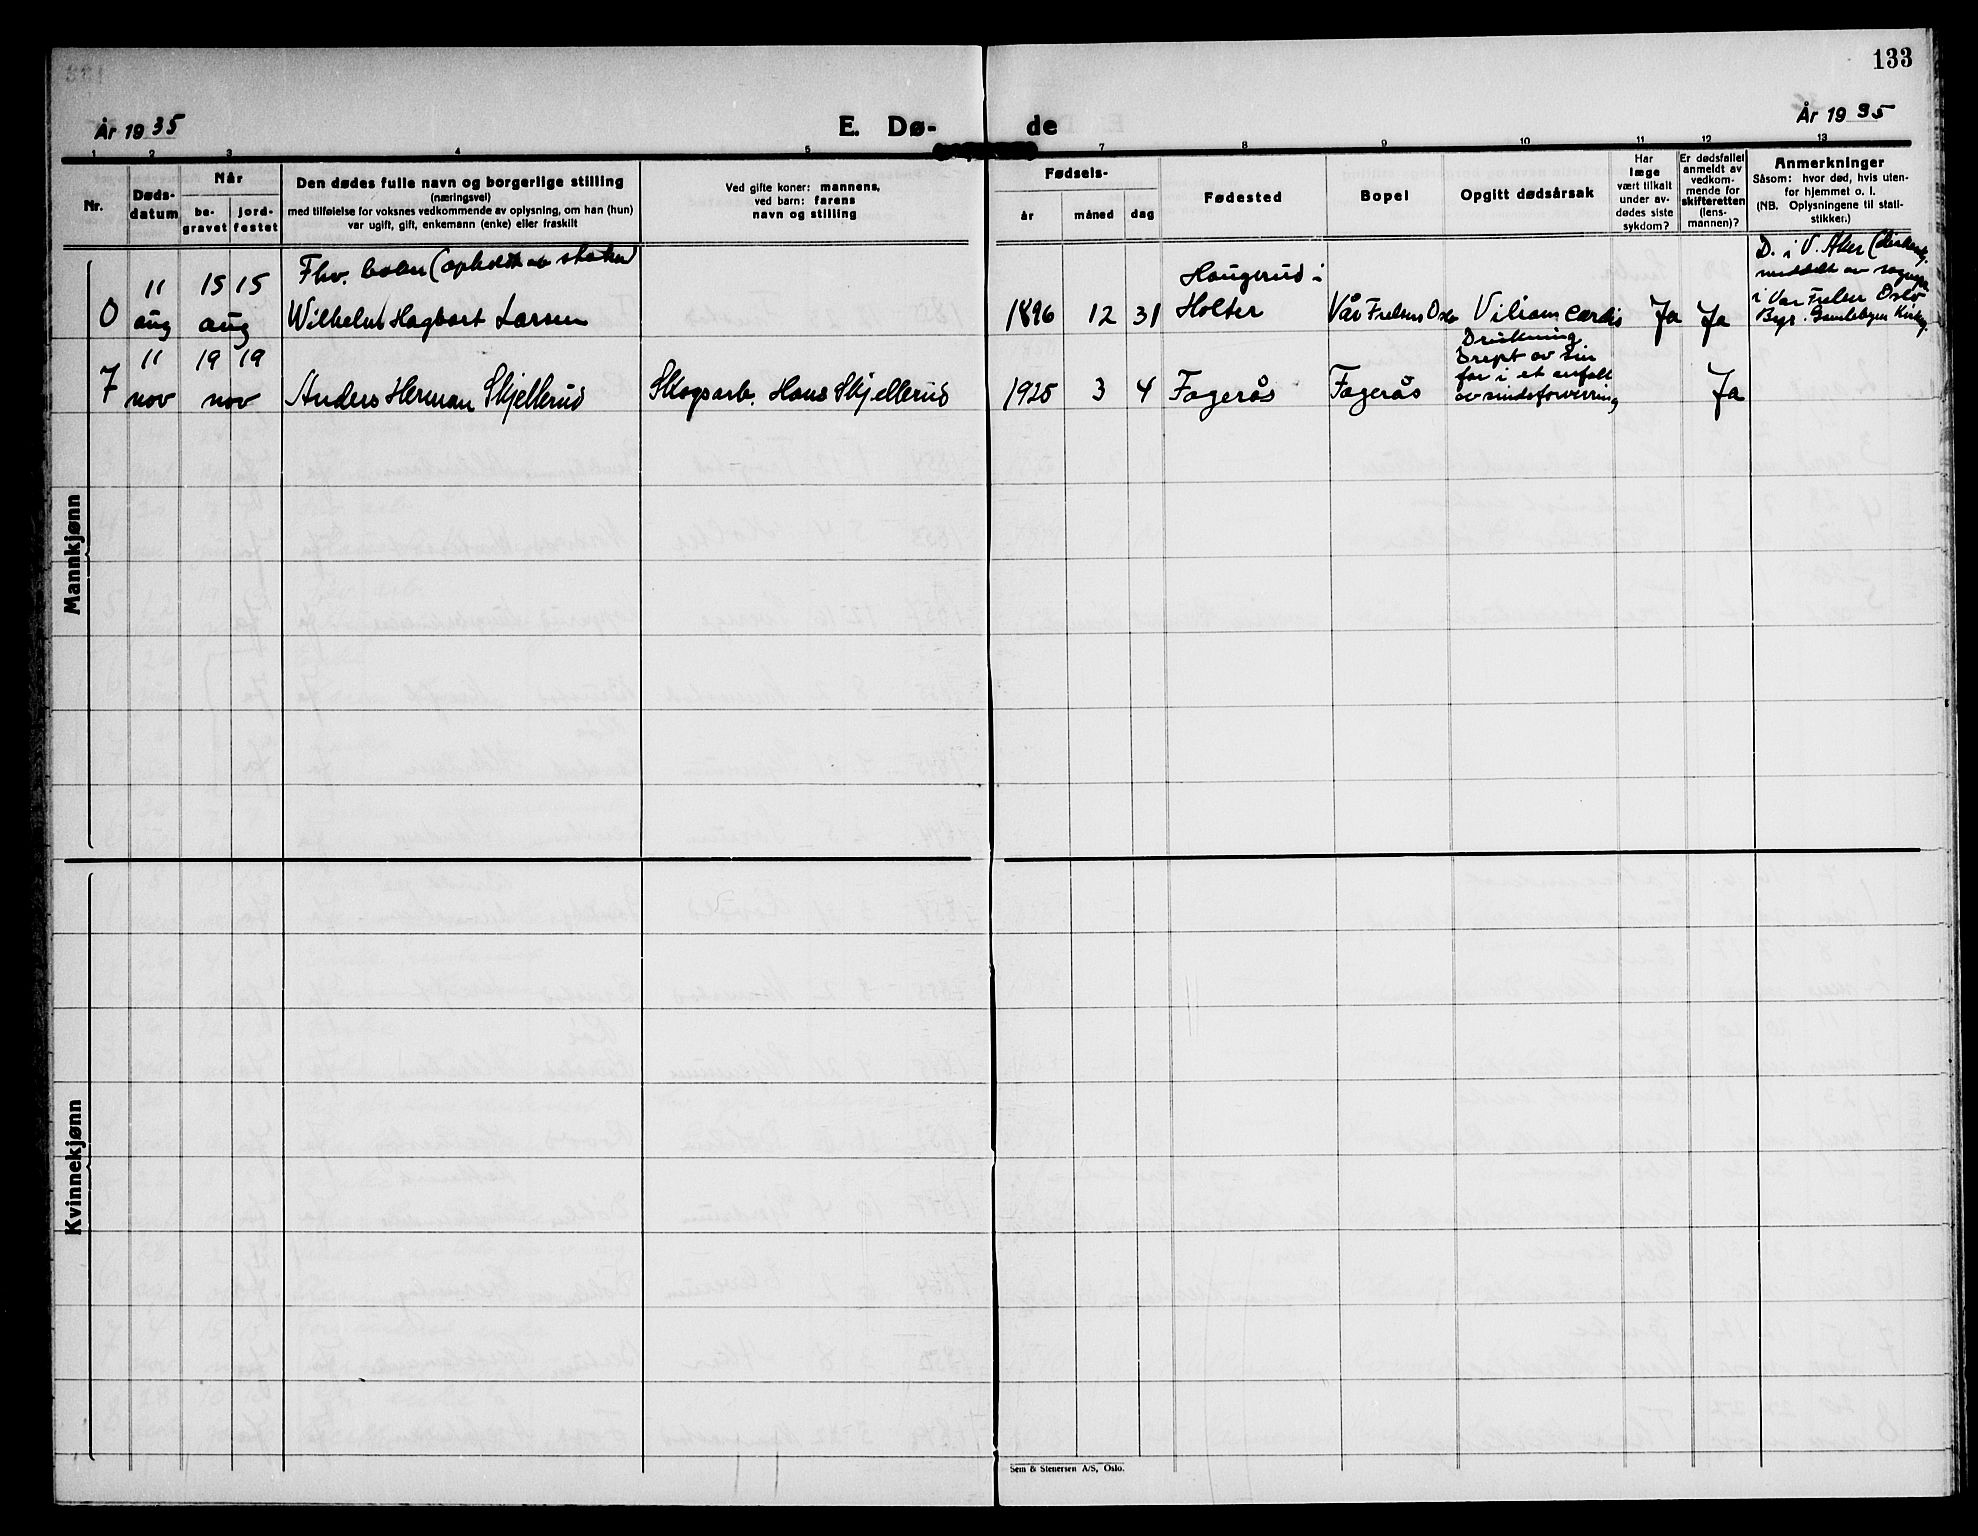 133
År 1935
E. Dø-
de
År 1935
1 2 3 4 5 7 8 9 10 11 12 13
Nr.
Døds-
datum
Når
be-
gravet
jord-
festet
Den dødes fulle navn og borgerlige stilling
(næringsvei)
med tilføielse for voksnes vedkommende av oplysning, om han (hun)
var ugift, gift, enkemann (enke) eller fraskilt
Ved gifte koner: mannens,
ved barn: farens
navn og stilling
Fødsels-
år
måned
dag
Fødested
Bopel
Opgitt dødsårsak
Har
læge
vært tilkalt
under av-
dødes siste
sykdom?
Er dødsfallet
anmeldt av
vedkom-
mende for
skifteretten
(lens-
mannen)?
Anmerkninger
Såsom: hvor død, hvis uten-
for hjemmet o. l.
(NB. Oplysningene til stati-
stikker.)
Mannkjønn
0
11
aug
15
aug
15
Fhv.
Wilhelm Hagbart Larsen
1896
12
31
Haugerud i
Holter
Vår Frelsers Oslo
Ja
Ja
D. i V. Aker
meddelt av
i Vår Frelser Oslo
Gamlebyen
7
11
nov
19
nov
19
Anders Herman Skjellerud
Skogsarb. Hans Skjellerud
1925
3
4
Fagerås
Fagerås
Drukning
Drept av sin
far i et anfall
av sindsforvirring
Ja
Kvinnekjønn
Sem & Stenersen A/S, Oslo.